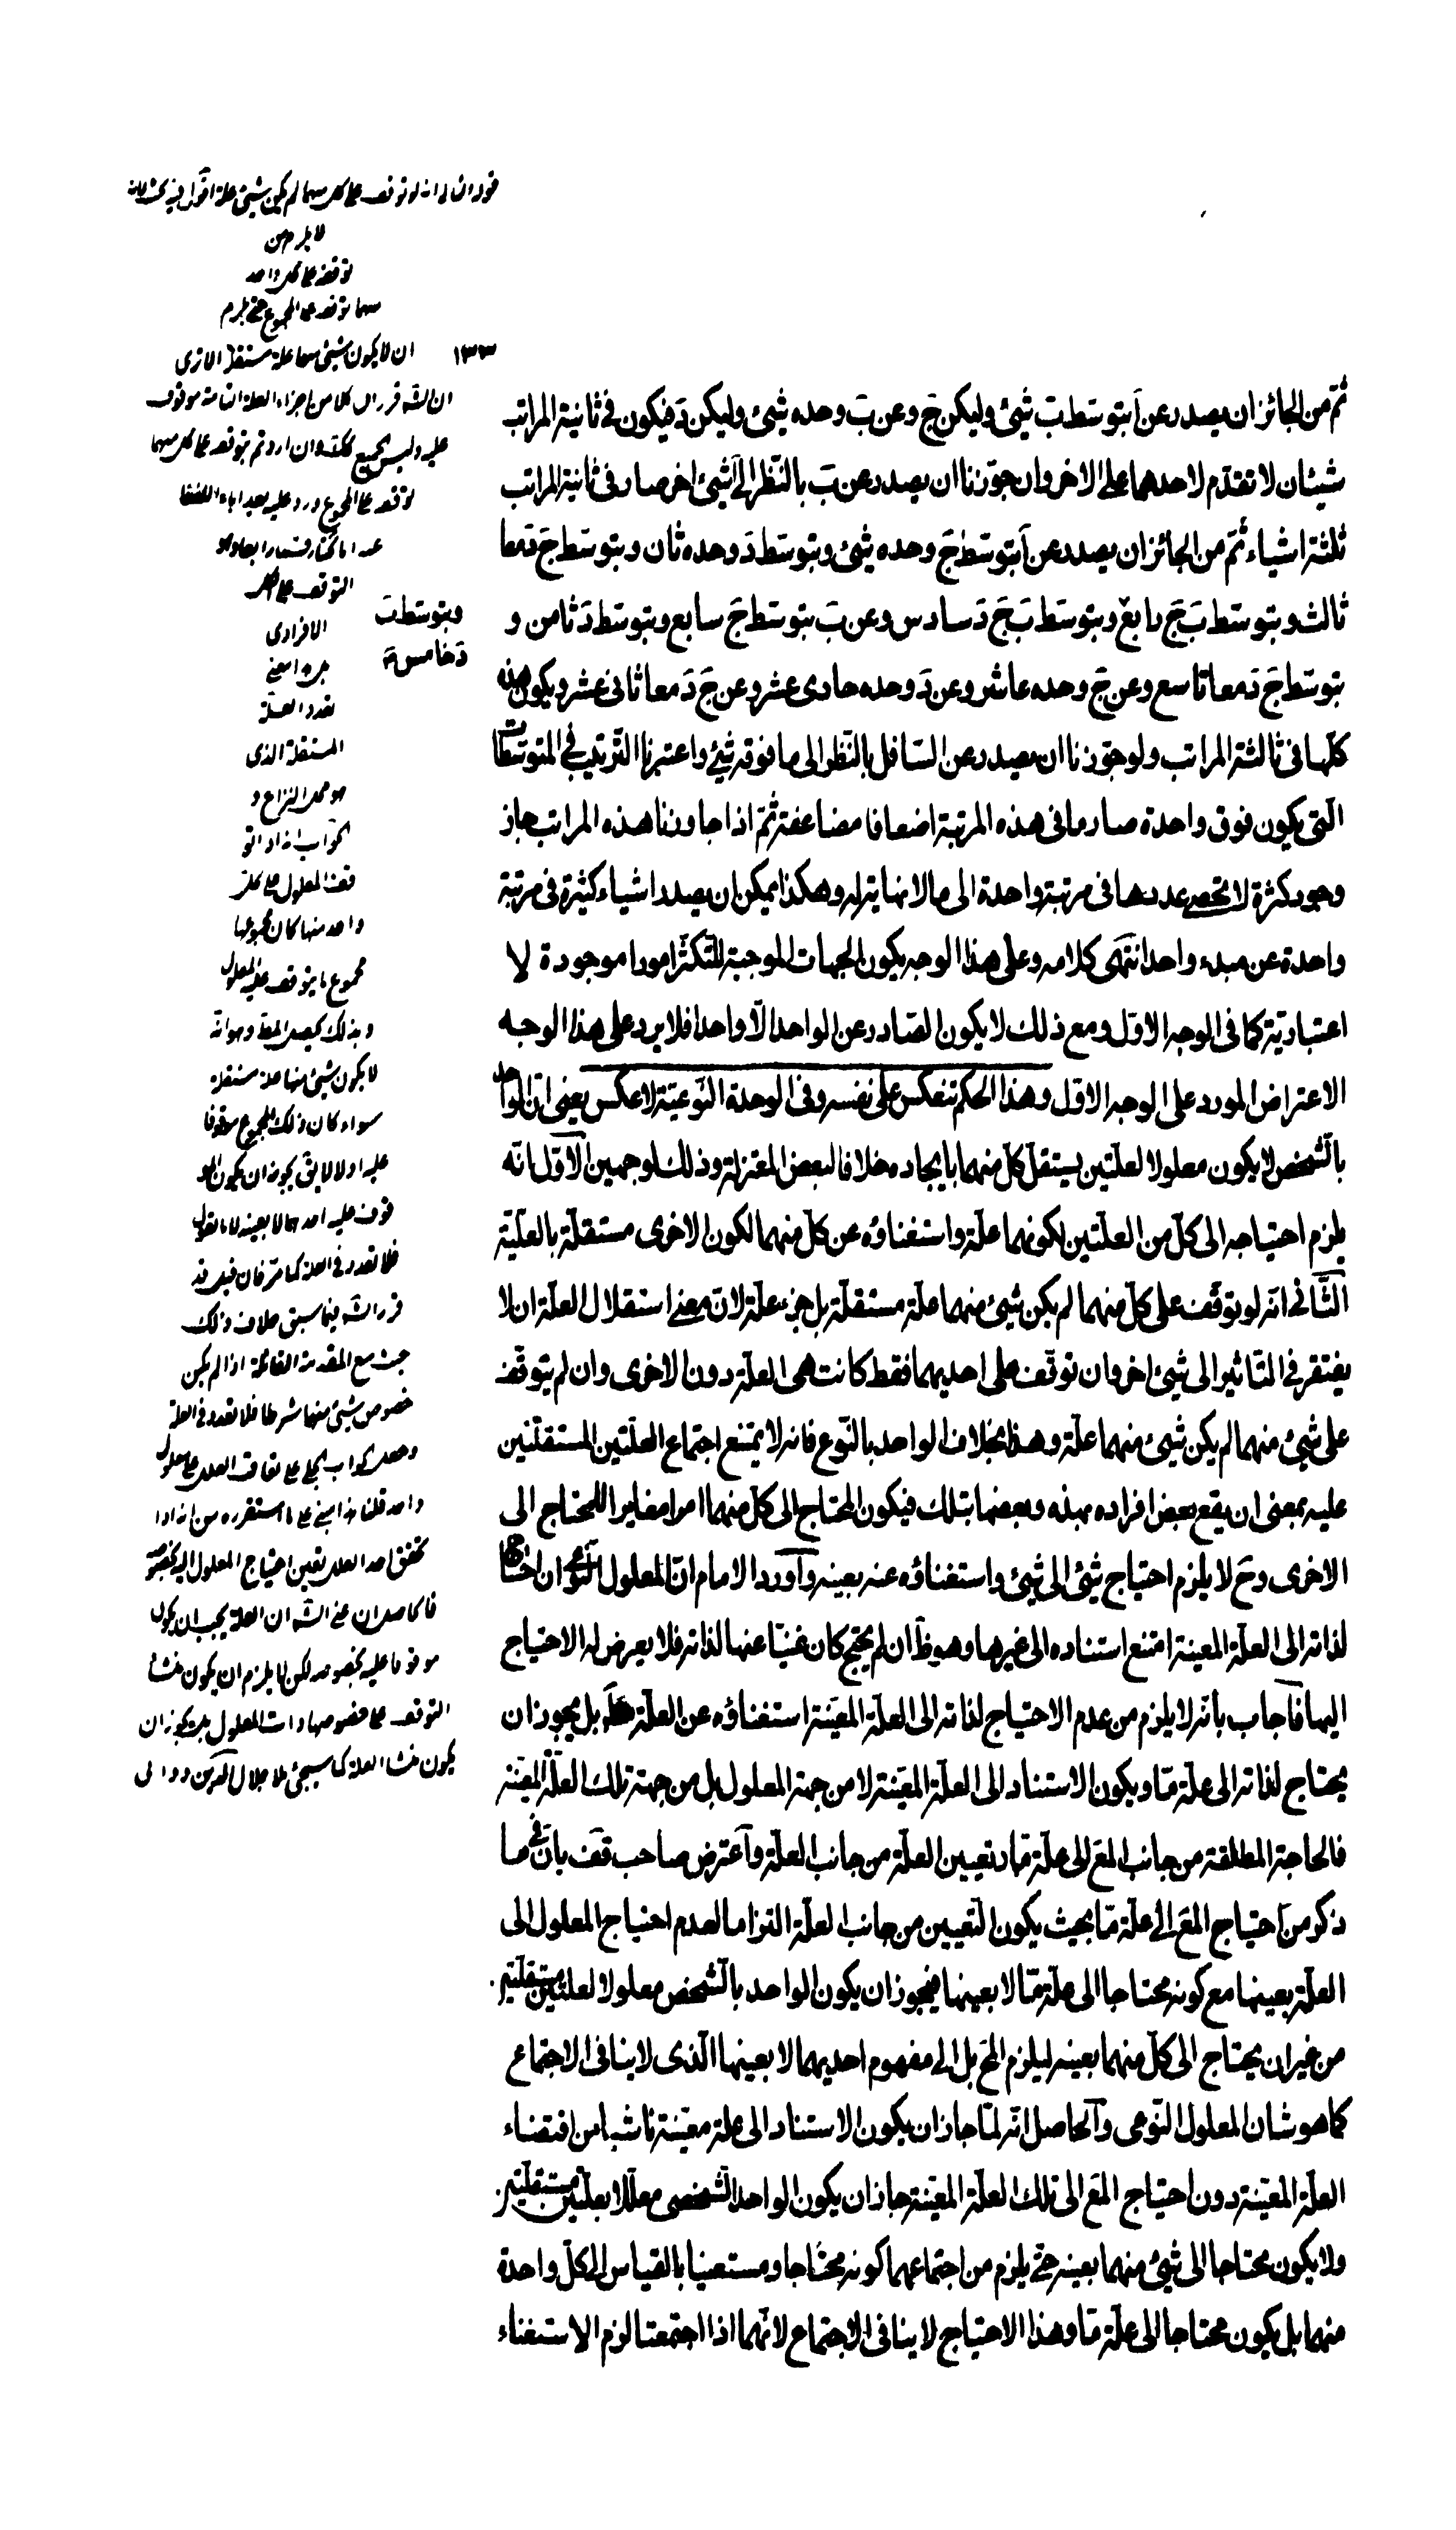 ثمّ من الجائز ان يصدر عن آ بتوسّط ب شيئ وليكن ج وعن ب وحده شيئ وليكن د فيكون في ثانية المراتب
شيئان لا تقدّم لاحدهما على الاخر وان جوّزنا ان يصدر عن ب بالنّظر الى آ شيئ اخر صار في ثانية المراتب
ثلثة اشياء ثمّ من الجائز ان يصدر عن آ بتوسّط ج وحده شيئ وبتوسّط د وحده ثان وبتوسّط ج د معا
ثالث وبتوسّط ب ج رابع وبتوسّط ب ج د سادس وعن ب بتوسّط ج سابع وبتوسّط د ثامن و
وبتوسّط ب
د خامس
بتوسّط ج د معا تاسع وعن ج وحده عاشر وعن د وحده حادى عشر وعن ج د معا ثانى عشر ويكون هذه
كلّها في ثالثة المراتب ولو جوّزنا ان يصدر عن السّافل بالنّظر الى ما فوقه شيئ واعتبرنا التّرتيب في المتوسّطات
الّتى يكون فوق واحدة صار ما في هذه المرتبة اضعافا مضاعفة ثمّ اذا جاوزنا هذه المراتب جاز
وجود كثرة لا تحصى عددها في مرتبة واحدة الى ما لا نهاية له وهكذا يمكن ان يصدر اشياء كثيرة في مرتبة
واحدة عن مبدء واحد انتهى كلامه وعلى هذا الوجه يكون الجهات الموجبة للتكثّر امورا موجودة لا
اعتباريّة كما في الوجه الاوّل ومع ذلك لا يكون الصّادر عن الواحد الّا واحدا فلا يرد على هذا الوجه
الاعتراض المورد على الوجه الاوّل وهذا الحكم تنعكس على نفسه وفي الوحدة النّوعيّة لا عكس يعنى انّ الواحد
بالشّخص لا يكون معلولا لعلّتين يستقلّ كلّ منهما بايجاده خلافا لبعض المعتزلة وذلك لوجهين الاوّل انّه
يلزم احتياجه الى كلّ من العلّتين لكونهما علّة واستغناؤه عن كلّ منهما لكون الاخرى مستقلّة بالعلّيّة
الثّانى انّه لو توقّف على كلّ منهما لم يكن شيئ منهما علّة مستقلّة بل جزء علّة لانّ معنى استقلال العلّة ان لا
يفتقر في التّاثير الى شيئ اخر وان توقّف على احديهما فقط كانت هى العلّة دون الاخرى وان لم يتوقّف
على شيئ منهما لم يكن شيئ منهما علّة وهذا بخلاف الواحد بالنّوع فانه لا يمتنع اجتماع العلّتين المستقلّتين
عليه بمعنى ان يقع بعض افراده بهذه وبعضها بتلك فيكون المحتاج الى كلّ منهما امرا مغايرا للمحتاج الى
الاخرى وح لا يلزم احتياج شيئ الى شيئ واستغناؤه عنه بعينه وآورد الامام انّ المعلول النّوعى ان احتاج
لذاته الى العلّة المعينة امتنع استناده الى غيرها وهو ظ وان لم يحتج كان غنيّا عنها لذاته فلا يعرض له الاحتياج
اليها فآجاب بانّه لا يلزم من عدم الاحتياج لذاته الى العلّة المعيّنة استغناؤه عن العلّة مط بل يجوز ان
يحتاج لذاته الى علّة مّا ويكون الاستناد الى العلّة المعيّنة لا من جهة المعلول بل من جهة تلك العلّة المعيّنة
فالحاجة المطلقة من جانب المع الى علّة مّا وتعيين العلّة من جانب العلّة وآعترض صاحب قف بانّ في ما
ذكر من احتياج المع الى علّة مّا بحيث يكون التّعيين من جانب العلّة التزاما لعدم احتياج المعلول الى
العلّة بعينها مع كونه محتاجا الى علّة مّا لا بعينها فيجوز ان يكون الواحد بالشّخص معلولا لعلّتين مستقلّتين
من غير ان يحتاج الى كلّ منهما بعينه ليلزم المح بل الى مفهوم احديهما لا بعينها الّذى لا ينافى الاجتماع
كما هو شان المعلول النّوعى وآلحاصل انّه لمّا جاز ان يكون الاستناد الى علّة معيّنة ناشيا من اقتضاء
العلّة المعيّنة دون احتياج المع الى تلك العلّة المعيّنة جاز ان يكون الواحد الشّخصى معلّلا بعلّتين مستقلّتين
ولا يكون محتاجا الى شيئ منهما بعينه حتّى يلزم من اجتماعهما كونه محتاجا ومستغنيا بالقياس الى كلّ واحدة
منهما بل يكون محتاجا الى علّة مّا وهذا الاحتياج لا ينافى الاجتماع لانّهما اذا اجتمعتا لزم الاستغناء
١٣٣
لا يلزم من
توقفه على كل واحد
منهما توقفه على المجموع حتى يلزم
ان لا يكون شيئ منهما علة مستقلة الا ترى
ان الشه قرر ان كلا من اجزاء العلة التامة موقوف
التوقف على كل
الافرادى
تعدد العلة
المستقلة الذى
هو محل النزاع و
قف المعلول على كل
واحد منها كان مجموعها
مجموع ما يتوقف عليه المعلول
وبذلك يحصل المقصود وهو انّه
لا يكون شيئ منها علة مستقلة
سواء كان ذلك المجموع موقوفا
عليه او لا لا يقال يجوز ان يكون المو
قوف عليه احدهما لا بعينه لانا نقول
فلا تعدد في العلة كما مرّ فان قيل قد
قرر الشه فيما سبق خلاف ذلك
حيث منع المقدمة القائلة اذا لم يكن
خصوص شيئ منهما شرطا فلا تعدد في العلة
واحد قلنا هذا مبنى على ما استقرره من انه اذا
تحقق احد العلل تعين احتياج المعلول اليه بخصوصه
موقوفا عليه بخصوصه لكن لا يلزم ان يكون منشأ
التوقف على خصوصها ذات المعلول بل يجوز ان
يكون منشأ العلة كما سيجئ ملا جلال الدين دوانى